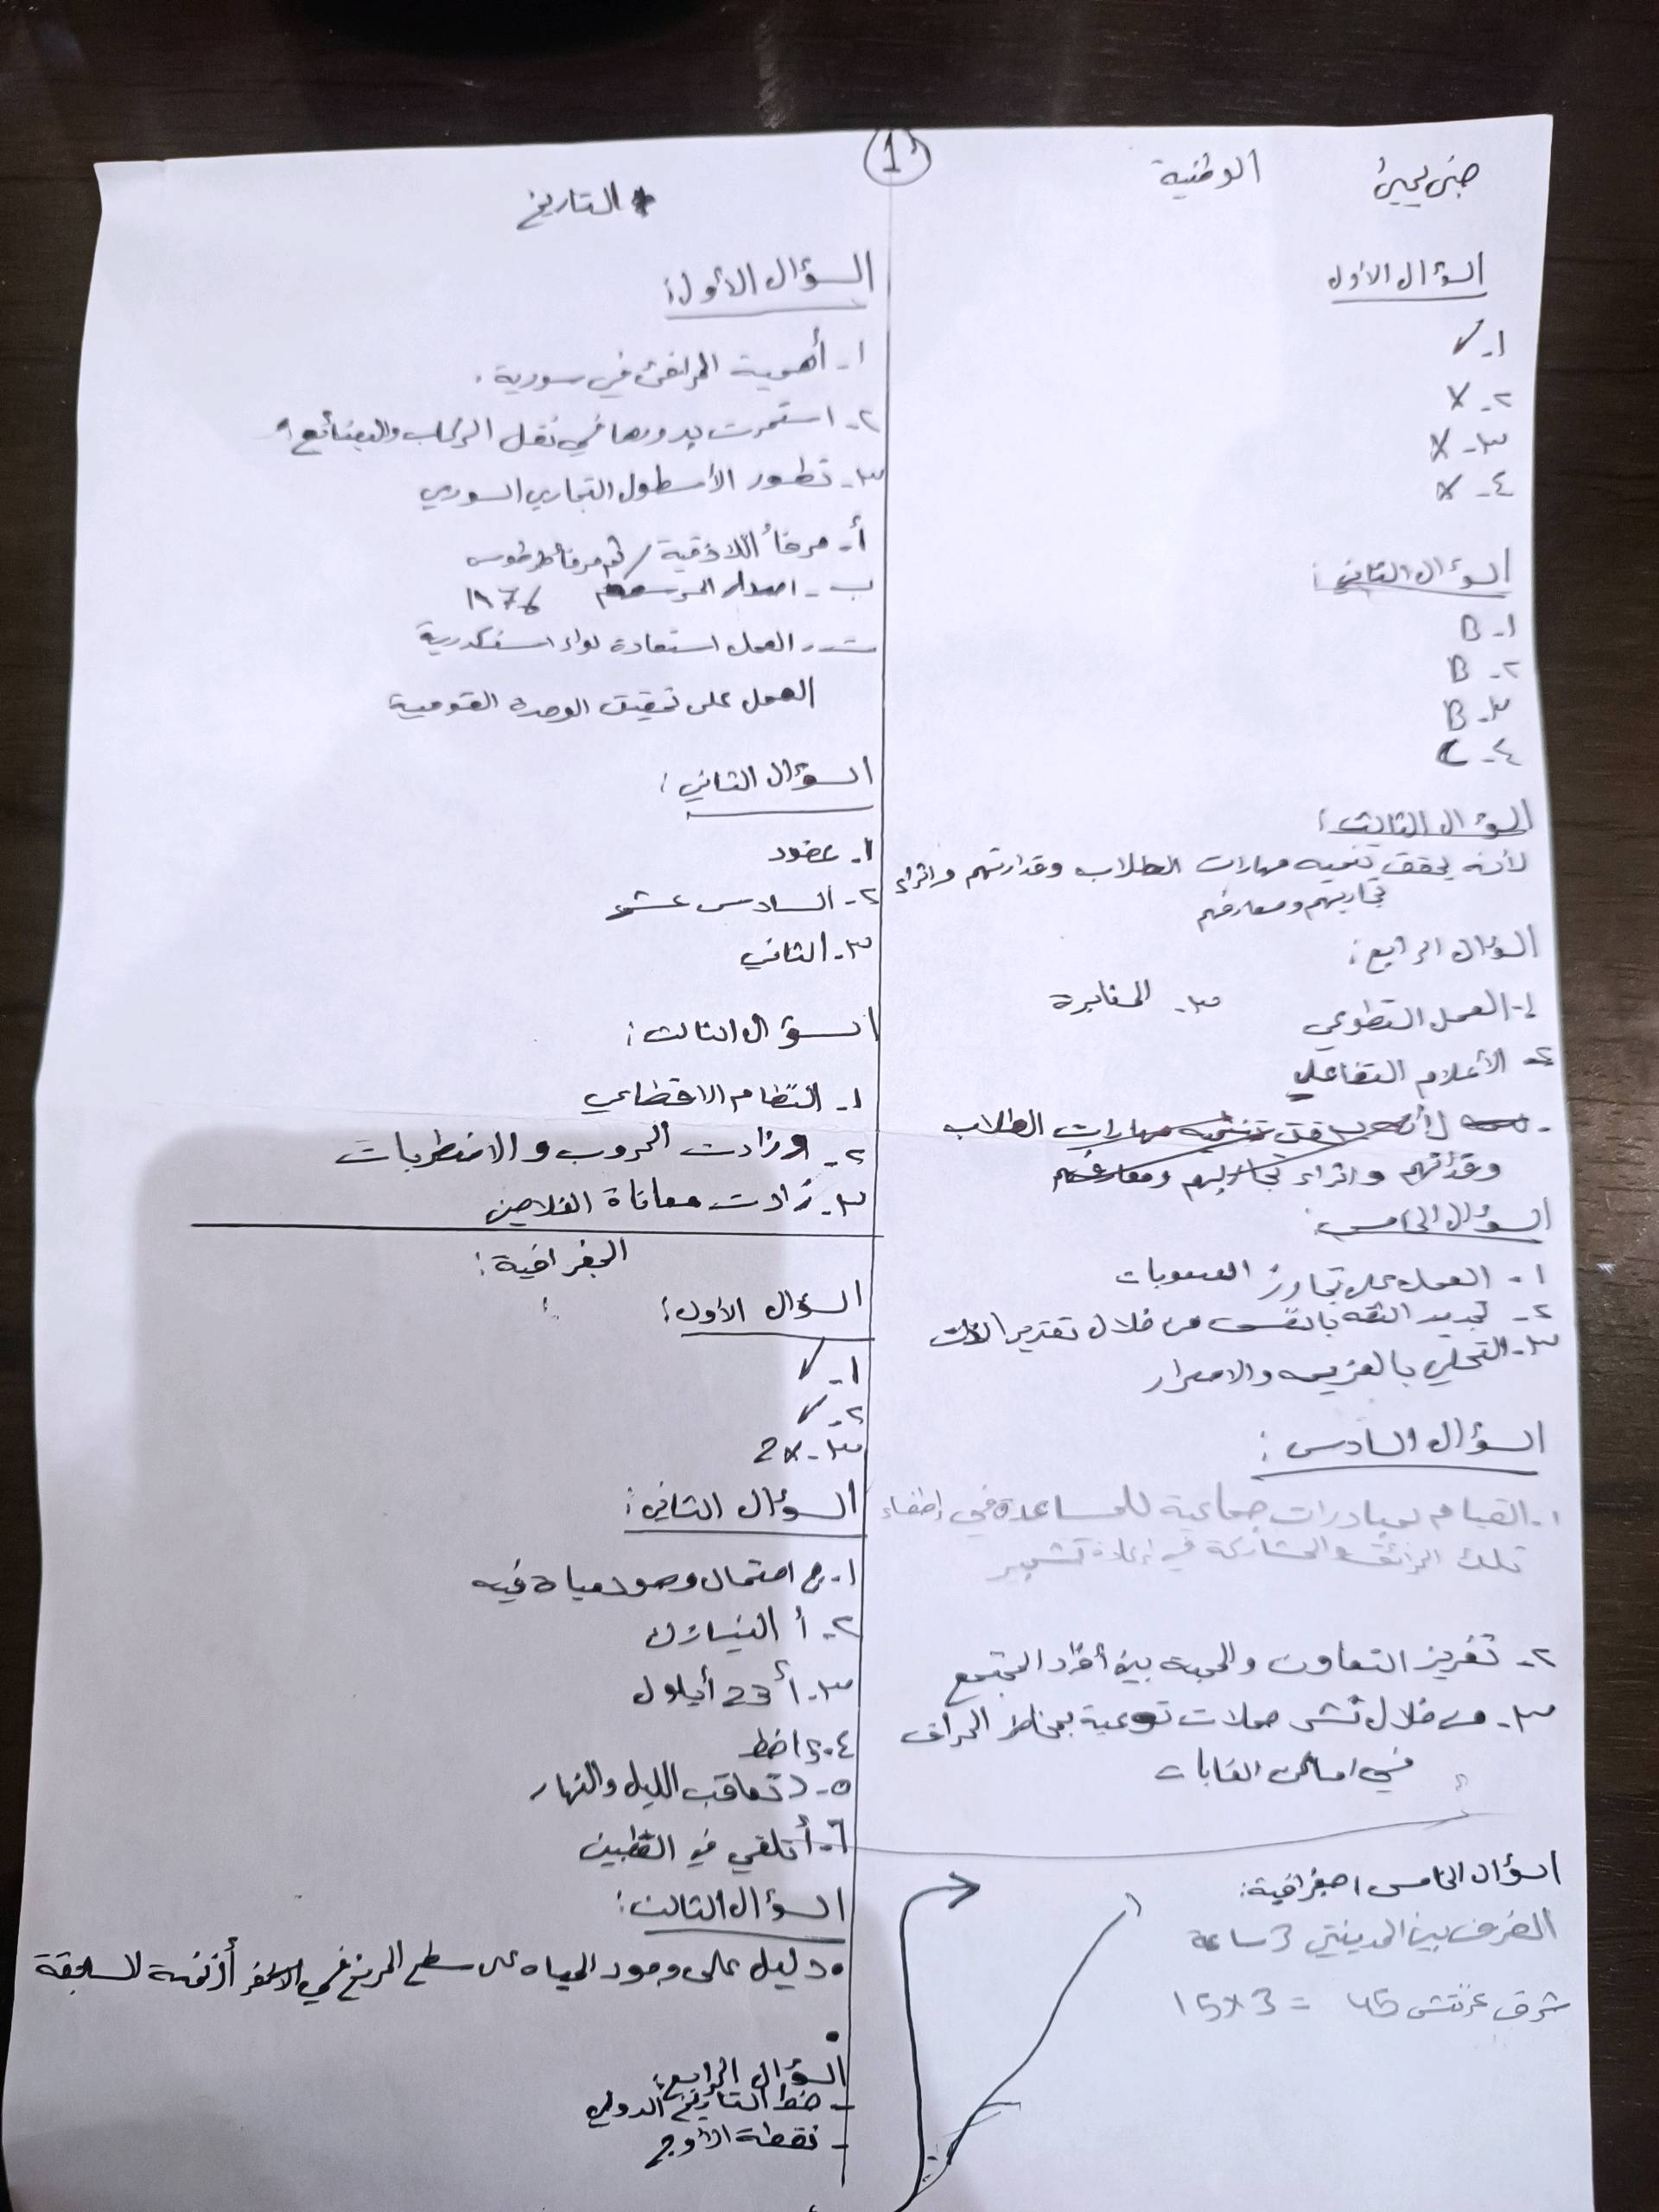 1
الوطنية
السؤال الأول
١- ✓
٢- X
٣- X
٤- X
السؤال الثاني:
١- B
٢- B
٣- B
٤- C
السؤال الثالث:
لأنه يحقق تنميه مهارات الطلاب وقدارتهم واثراء
تجاربهم ومعارفهم
السؤال الرابع:
١- العمل التطوعي
٣- المثابرة
٢- الأعلام التفاعلي
لأنه يحقق تنميه مهارات الطلاب
وقدراتهم واثراء تجاربهم ومعارفهم
السؤال الخامس:
١- العمل على تجاوز الصعوبات
٢- تجديد الثقه بالنفس من خلال تقدير الذات
٣- التحلي بالعزيمه والاصرار
السؤال السادس:
١- القيام بمبادرات جماعية للمساعدة في إطفاء
تلك الحرائق والمشاركة في إعادة تشجير
٢- تعزيز التعاون والمحبه بين أفراد المجتمع
٣- من خلال نشر حملات توعية بمخاطر الحرائق
في اماكن الغابات
السؤال الخامس جغرافية:
الفرق بين المدينتي 3 ساعة
شرق غرنتش 45 = 3×15
التاريخ
السؤال الأول:
١- أهمية المرافئ في سورية.
٢- استمرت بدورها في نقل الركاب والبضائع
٣- تطور الأسطول التجاري السوري
أ- مرفأ اللاذقية / ثم مرفأ طرطوس
ب- اصدار المرسوم
ت- العمل استعادة لواء اسنكدرية
العمل على تحقيق الوحدة القومية
السؤال الثاني:
١- عضود
٢- السادس عشر
٣- الثاني
السؤال الثالث:
١- النظام الاقطاعي
٢- وزادت الحروب والاضطربات
٣- زادت معاناة الفلاحين
الجغرافية:
السؤال الأول:
١- ✓
٢- ✓
٣- X
السؤال الثاني:
١- ج احتمال وجود حياة فيه
٢- أ النيازك
٣- أ 23 أيلول
٤- خط
٥- د تعاقب الليل والنهار
٦- أ تلتقي في القطبين
السؤال الثالث:
• دليل على وجود المياه على سطح المريخ في أزنمة السابقة
•
السؤال الرابع:
- خط التاريخ الدولي
- نقطة الأوج